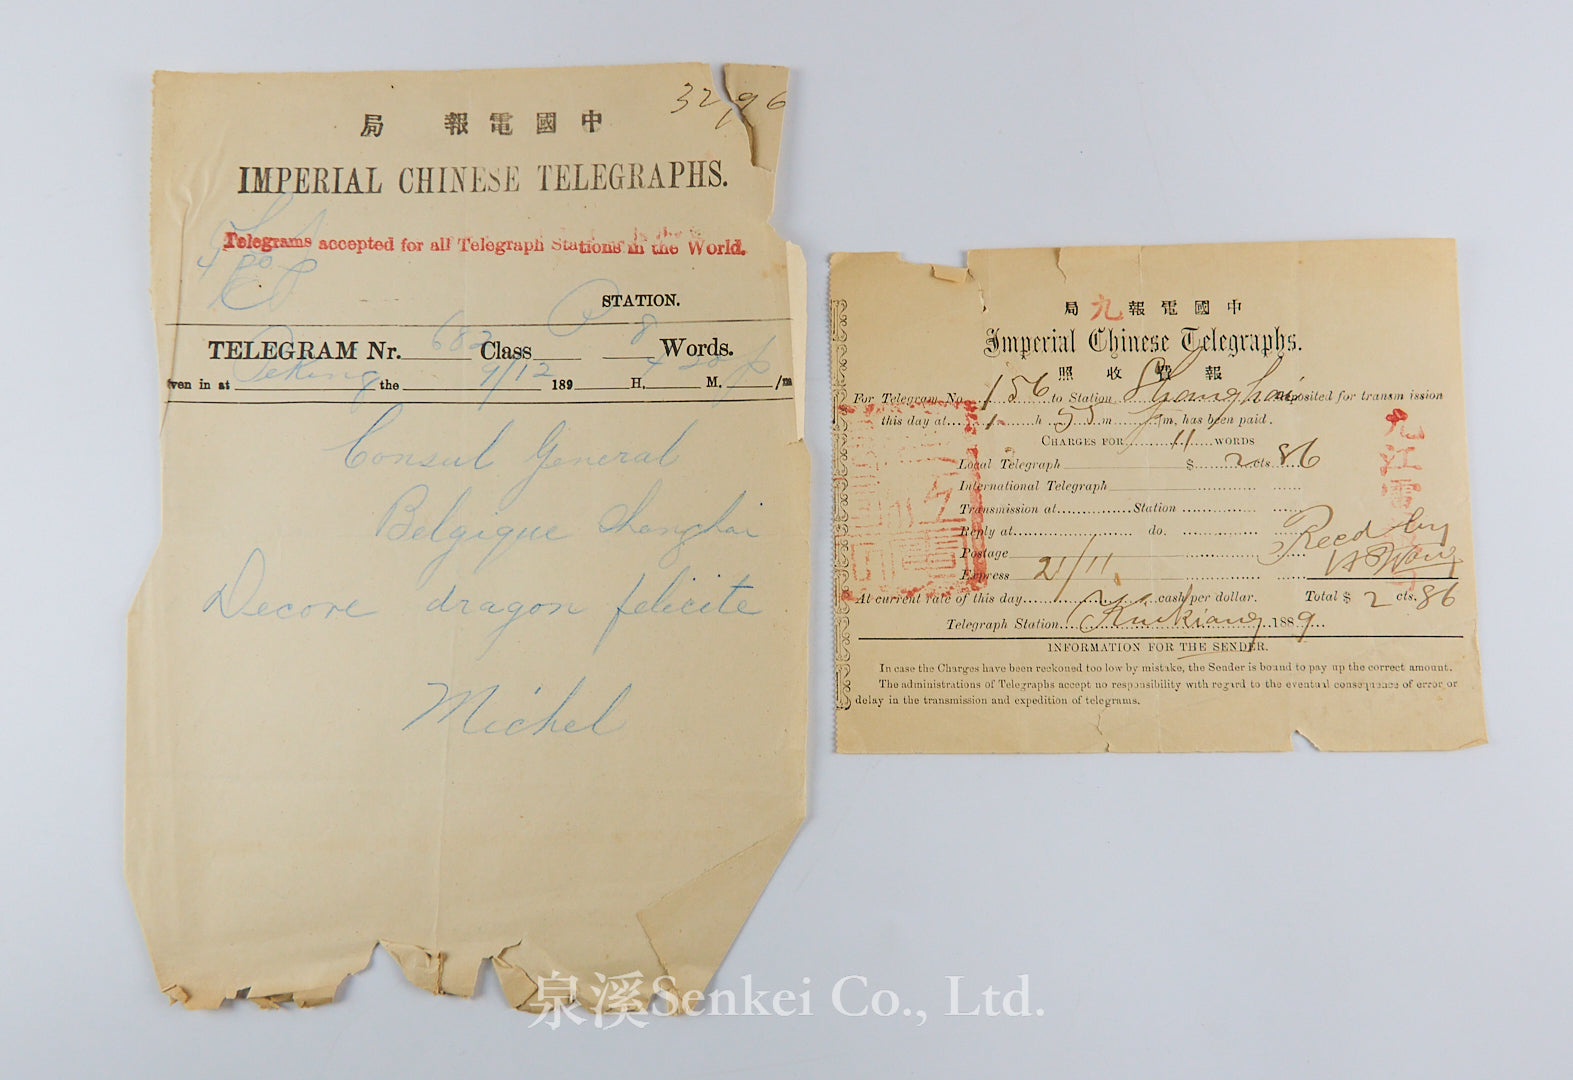 3296
局 報電國中
IMPERIAL CHINESE TELEGRAPHS.
Telegrams accepted for all Telegraph Stations in the World.
STATION.
TELEGRAM Nr. 682 Class P 8 Words.
ven in at Peking the 9/12 189 H, 4 M. 20 p /m
Consul General
Belgique Shanghai
Decore dragon felicite
Michel
局九報電國中
Imperial Chinese Telegraphs.
照收費報
For Telegram No. 156 to Station Shanghai deposited for transmission
this day at 1 h 55 m p m, has been paid.
CHARGES FOR 11 WORDS
Local Telegraph $ 2 cts. 86
International Telegraph
Transmission at Station
Reply at do.
Postage
Recd by
Express 21/11
At current rate of this day cash per dollar. Total $ 2 cts. 86
Telegraph Station Kiukiang 1889
九江電
INFORMATION FOR THE SENDER.
In case the Charges have been reckoned too low by mistake, the Sender is bound to pay up the correct amount.
The administrations of Telegraphs accept no responsibility with regard to the eventual consequence of error or
delay in the transmission and expedition of telegrams.
泉溪Senkei Co., Ltd.